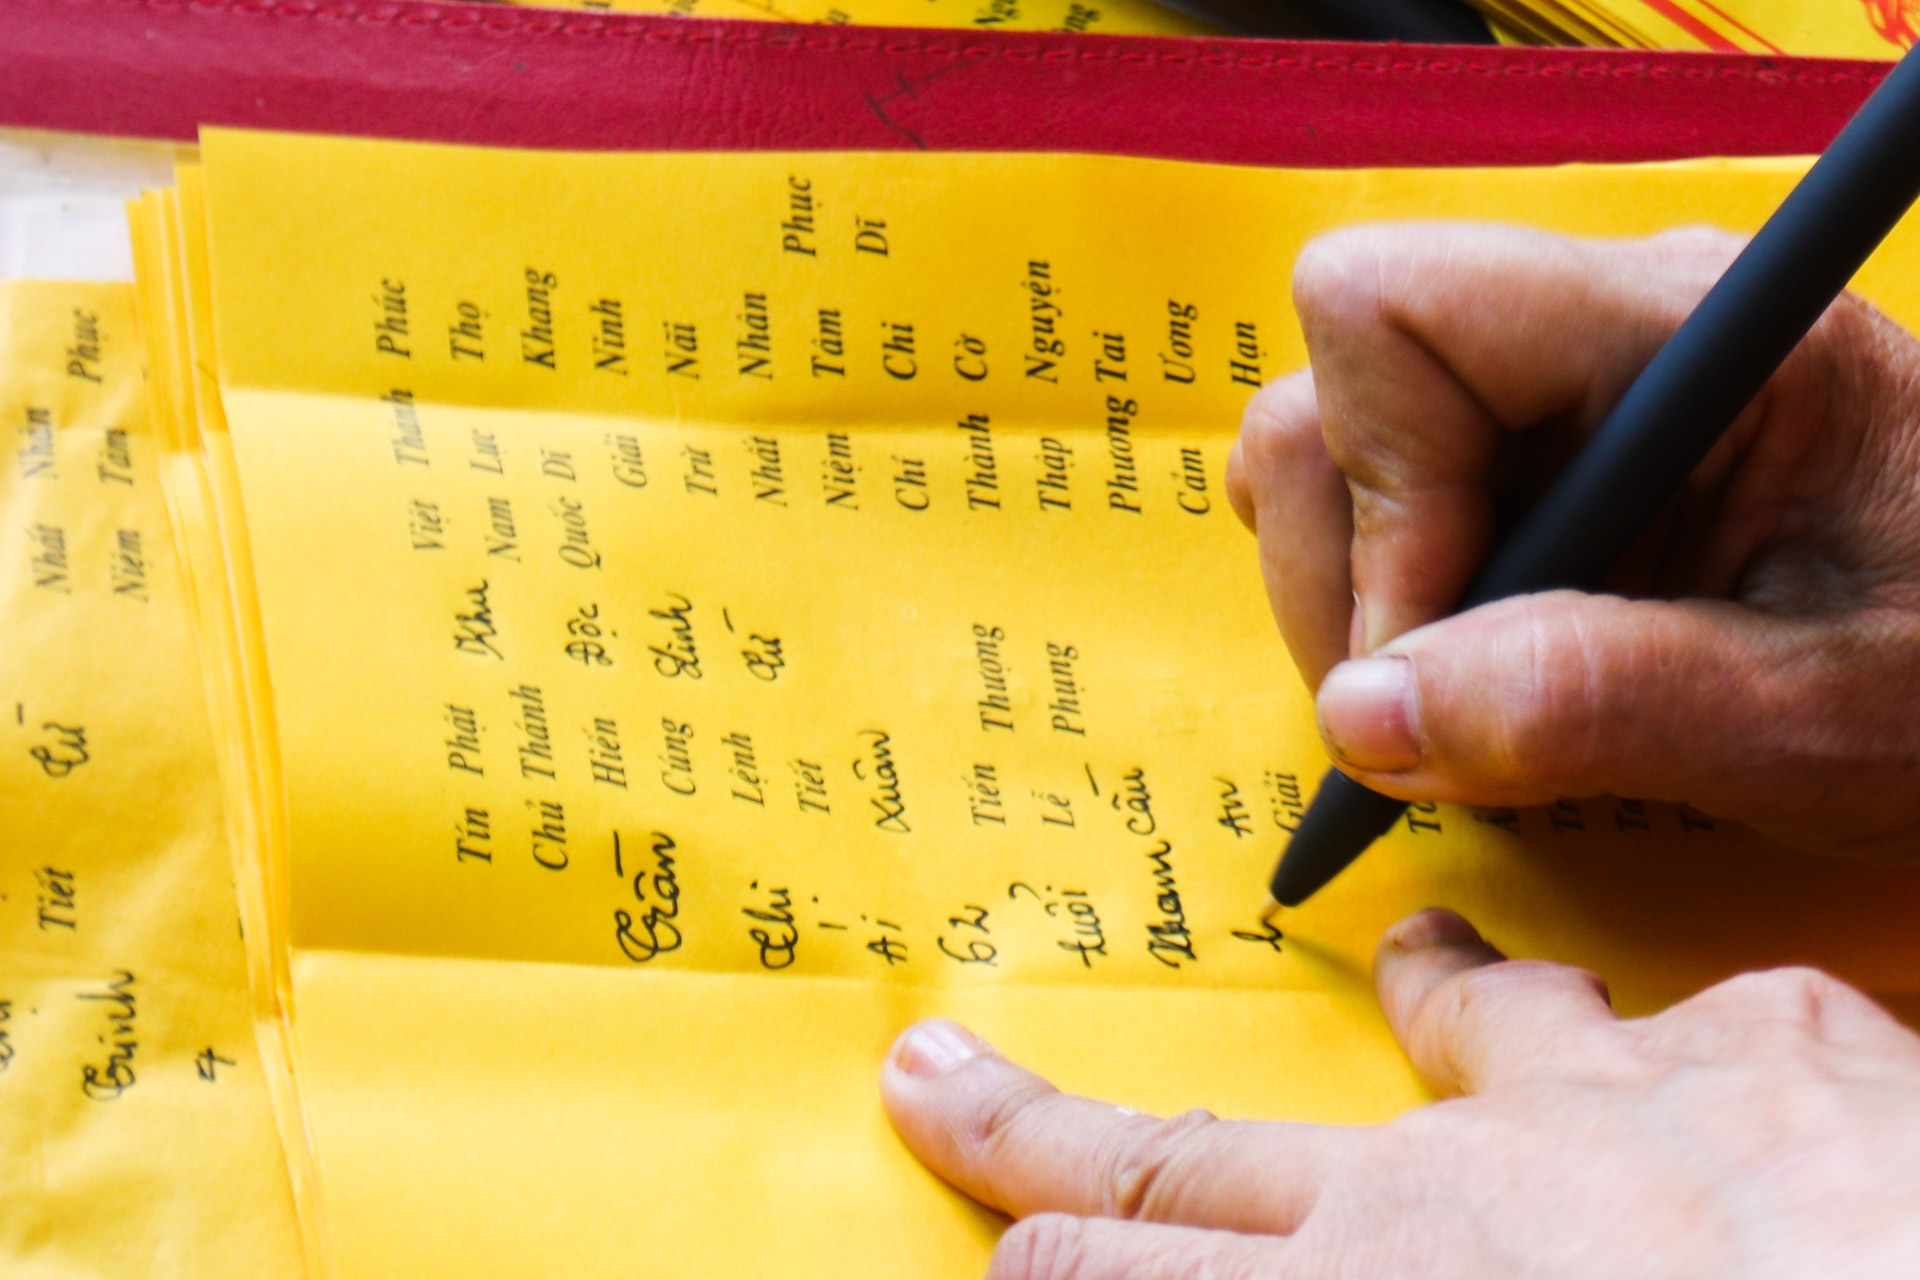 Phục Dĩ
Phúc Thọ Khang Ninh Nãi Nhân Tâm Chi Cờ Nguyện Tai Ương Hạn
Thánh Lực Dĩ Giải Trừ Nhất Niệm Chí Thành Tháp Phương Cảm
Việt Nam Quốc
Khu Độc Linh Từ
Thượng Phụng
Phật Thánh Hiến Cúng Lệnh Tiết Xuân Tiến Lễ Cầu An Giải
Tín Chủ Trần Thị Ái 62 tuổi
Phục
Nhân Tâm
Nhất Niệm
Từ
Tiết
Trinh